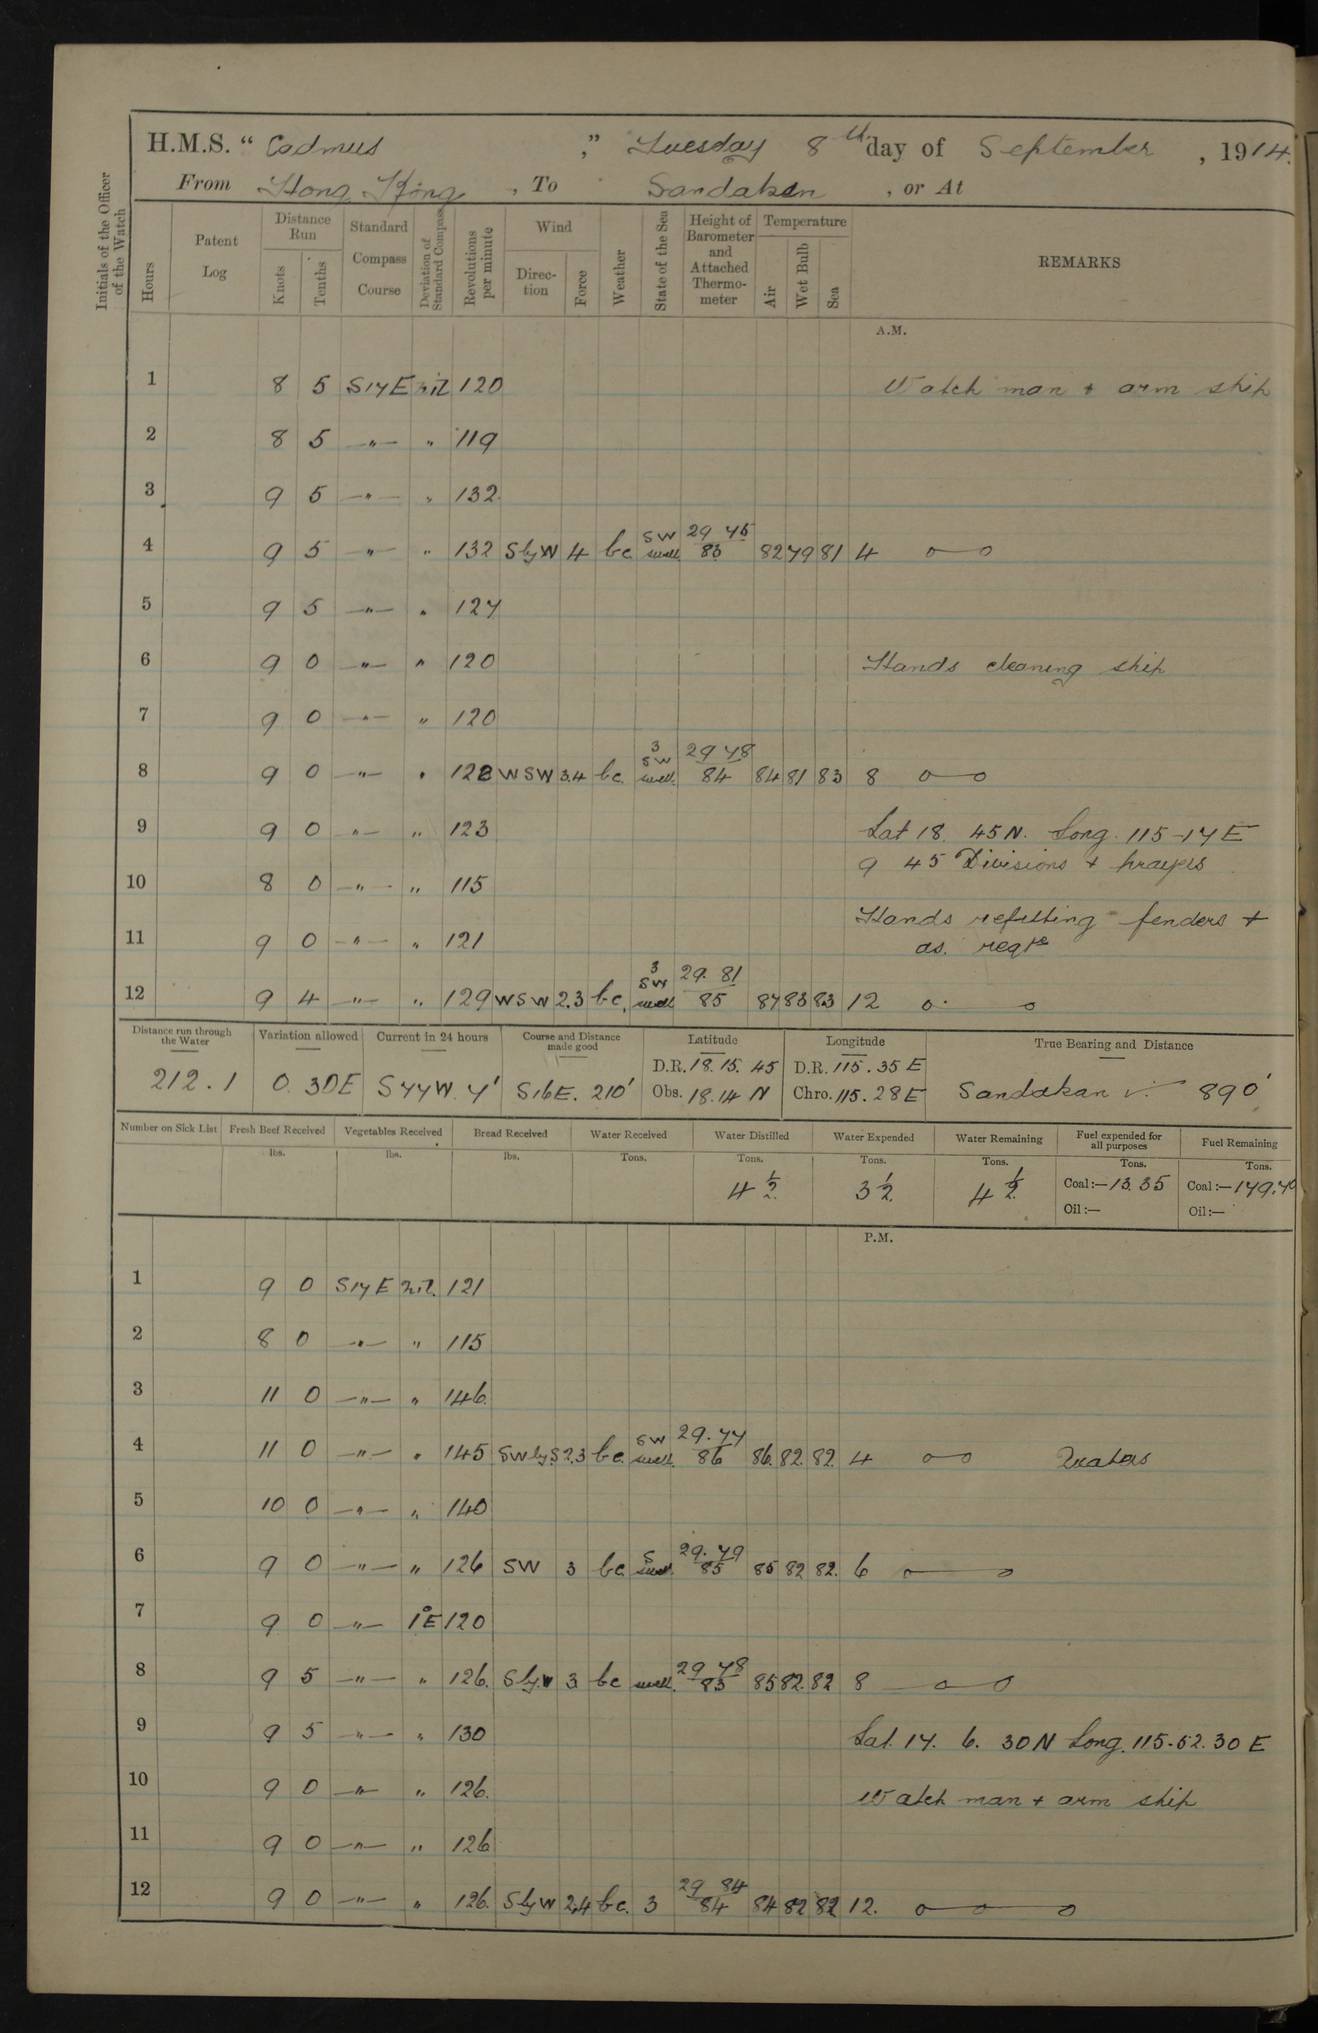 H.M.S. “ Cadmus ,” Tuesday 8th day of September , 1914.
From Hong Kong , To Sandakan , or At
Initials of the Officer of the Watch
Hours
Patent Log
Distance Run
Knots
Tenths
Standard Compass Course
Deviation of Standard Compass
Revolutions per minute
Wind
Direction
Force
Weather
State of the Sea
Height of Barometer and Attached Thermometer
Temperature
Air
Wet Bulb
Sea
REMARKS
A.M.
1 8 5 S17E nil 120 Watch man + arm ship
2 8 5 —"— " 119
3 9 5 —"— " 132
4 9 5 —"— " 132 SbyW 4 bc SW swell 29 75 83 82 79 81 4 o—o
5 9 5 —"— " 127
6 9 0 —"— " 120 Hands cleaning ship
7 9 0 —"— " 120
8 9 0 —"— " 122 WSW 3.4 bc. 3 SW swell. 29 78 84 84 81 83 8 o—o
9 9 0 —"— " 123 Lat 18 45 N. Long. 115-17 E
9 45 Divisions + prayers
10 8 0 —"— " 115
Hands refitting fenders +
11 9 0 —"— " 121 as. reqte
12 9 4 —"— " 129 WSW 2.3 bc, 3 SW swell 29. 81 85 87 83 83 12 o—o
Distance run through the Water 212.1
Variation allowed 0.30E
Current in 24 hours S77W. 7'
Course and Distance made good S16E. 210'
Latitude D.R. 18.15.45 Obs. 18.14 N
Longitude D.R. 115.35 E Chro. 115.28 E
True Bearing and Distance Sandakan 890'
Number on Sick List
Fresh Beef Received lbs.
Vegetables Received lbs.
Bread Received lbs.
Water Received Tons.
Water Distilled Tons. 4 1/2
Water Expended Tons. 3 1/2
Water Remaining Tons. 4 1/2
Fuel expended for all purposes Tons. Coal:— 13.35 Oil:—
Fuel Remaining Tons. Coal:— 179.70 Oil:—
P.M.
1 9 0 S17E nil. 121
2 8 0 —"— " 115
3 11 0 —"— " 146.
4 11 0 —"— " 145 SWbyS 2.3 bc. SW swell. 29.77 86 86. 82. 82. 4 o—o Quarters
5 10 0 —"— " 140
6 9 0 —"— " 126 SW 3 bc S swell. 29.79 85 85 82 82. 6 o—o
7 9 0 —"— 1°E 120
8 9 5 —"— " 126. SbyW 3 bc swell. 29 78 85 85 82. 82 8 —o—o
9 9 5 —"— " 130 Lat. 17. 6. 30 N Long. 115.52.30 E
10 9 0 —"— " 126. Watch man + arm ship
11 9 0 —"— " 126
12 9 0 —"— " 126. SbyW 2.4 bc. 3 29 84 84 84 82 82 12. o—o—o